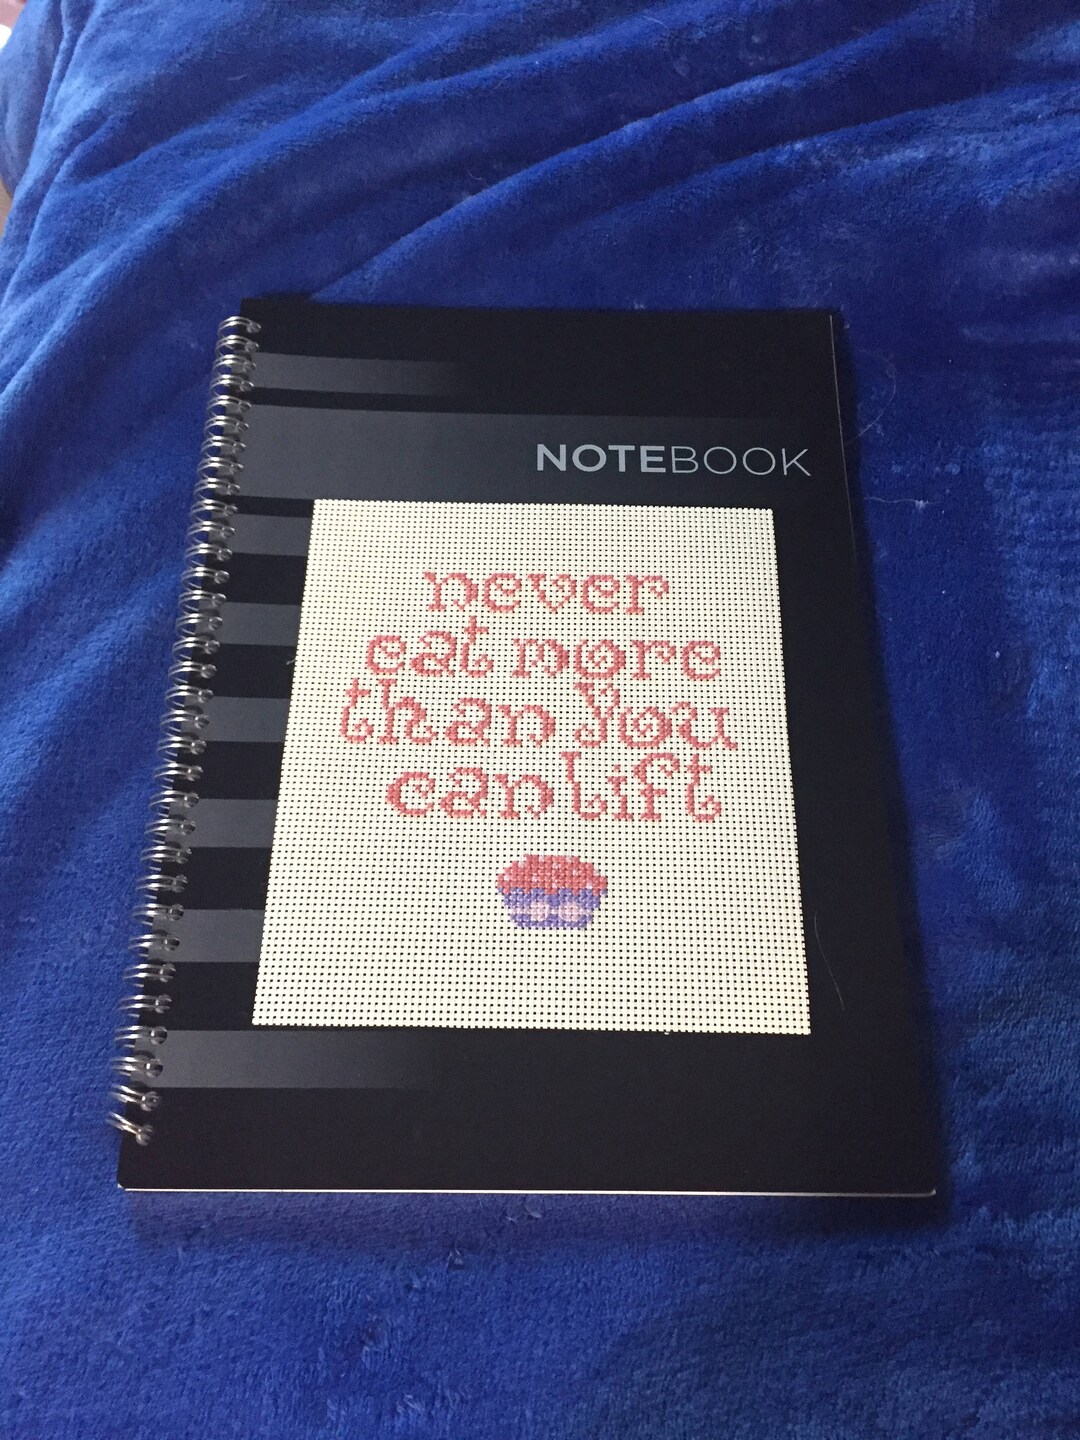 NOTEBOOK
never
eat more
than you
can lift